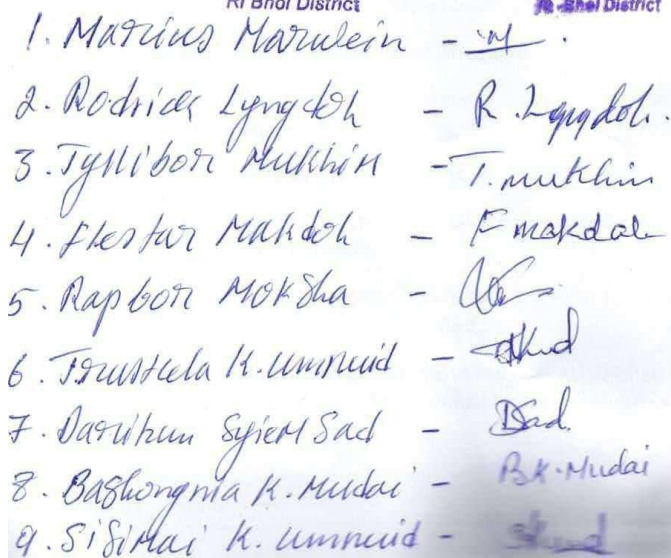 Ri Bhoi District Ri-Bhoi District
1. Marius Marwein -
2. Rodrick Lyngdoh - R. Lyngdoh.
3. Tyllibor Mukhim - T. mukhim
4. Flestar Makdoh - F makdoh
5. Rapbor Moksha -
6. Trusteela K. Umnuid -
7. Darihun Syiem Sad - DSad.
8. Bashongmia K. Mudai - BK. Mudai
9. Sisimai K. Umnuid -